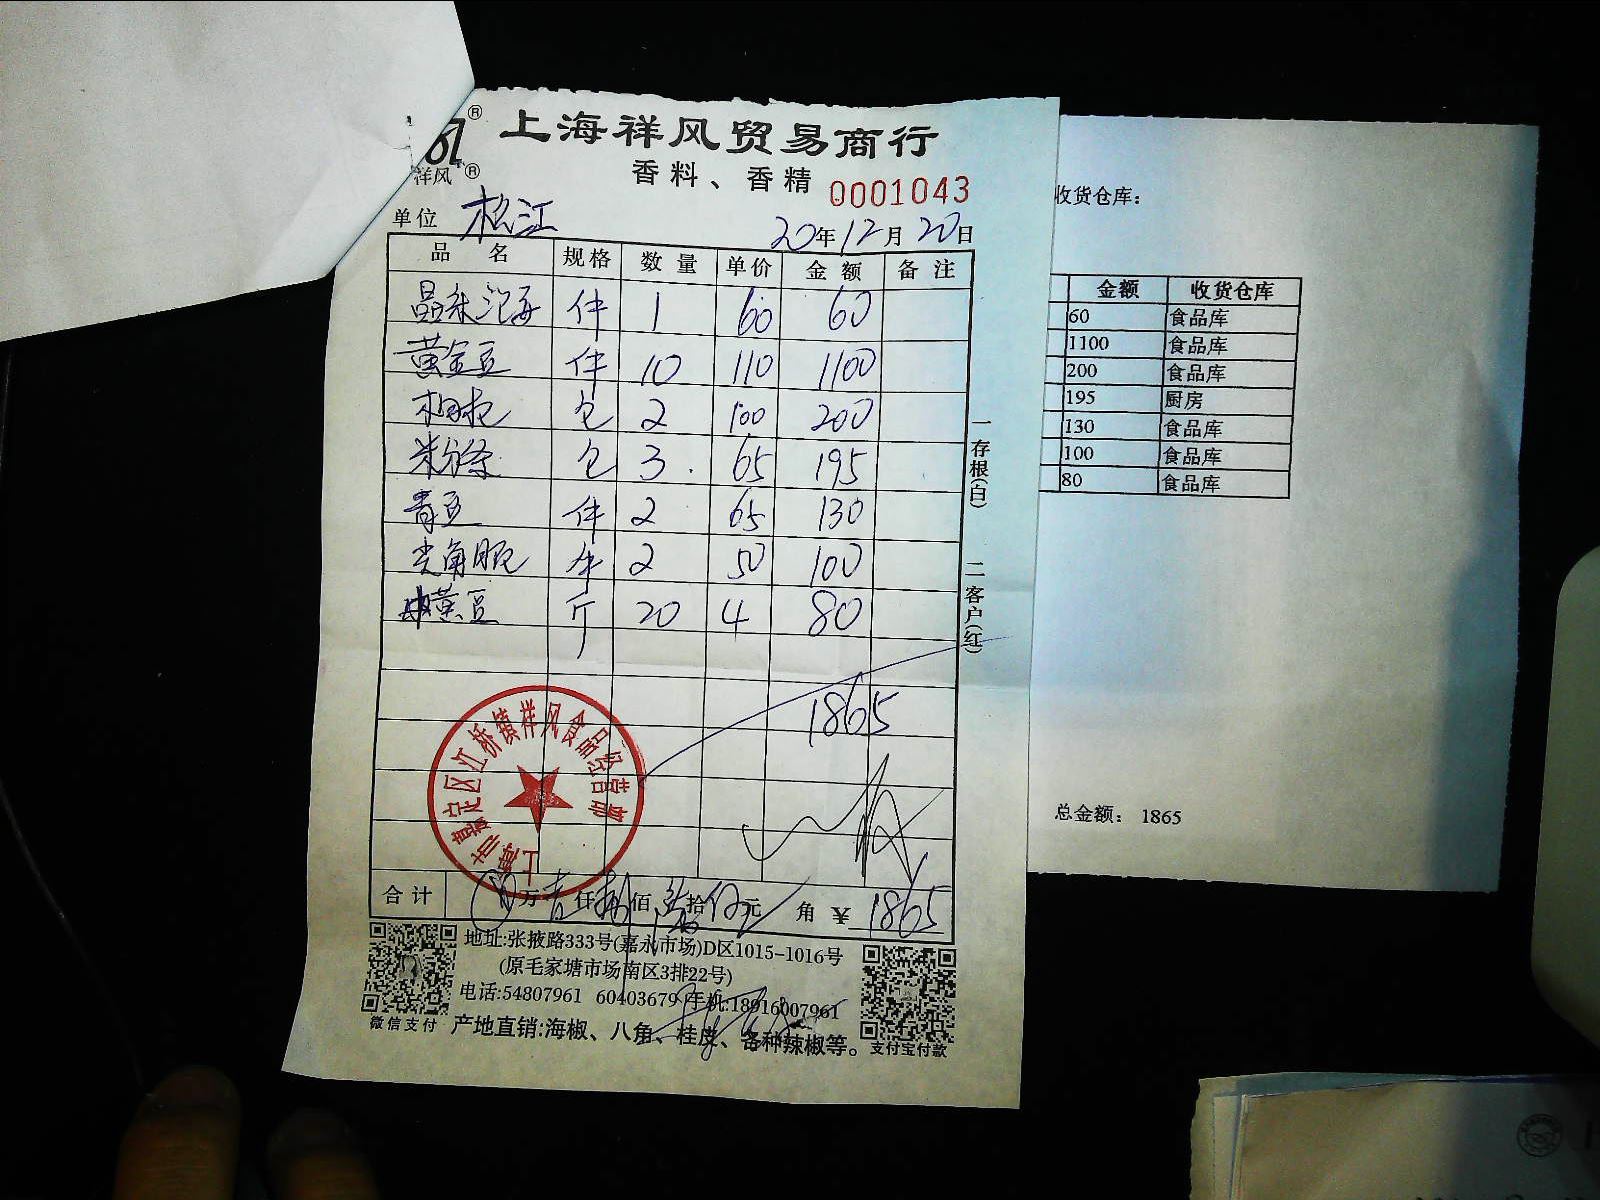 祥风
上海祥风贸易商行
香料、香精 0001043
单位 松江 20年12月20日
品名 规格 数量 单价 金额 备注
件 1 60 60
黄金豆 件 10 110 1100
包 2 100 200
米粉条 包 3 65 195
青豆 件 2 65 130
件 2 50 100
黄豆 斤 20 4 80
1865
一存根(白) 二客户(红)
上海市嘉定区江桥镇祥风食品经营部
合计 万壹仟捌佰陆拾伍元 角 ¥1865
地址:张掖路333号(嘉永市场)D区1015-1016号
(原毛家塘市场南区3排22号)
电话:54807961 60403679 手机:18916007961
微信支付 产地直销:海椒、八角、桂皮、各种辣椒等。 支付宝付款
收货仓库:
金额 收货仓库
60 食品库
1100 食品库
200 食品库
195 厨房
130 食品库
100 食品库
80 食品库
总金额: 1865